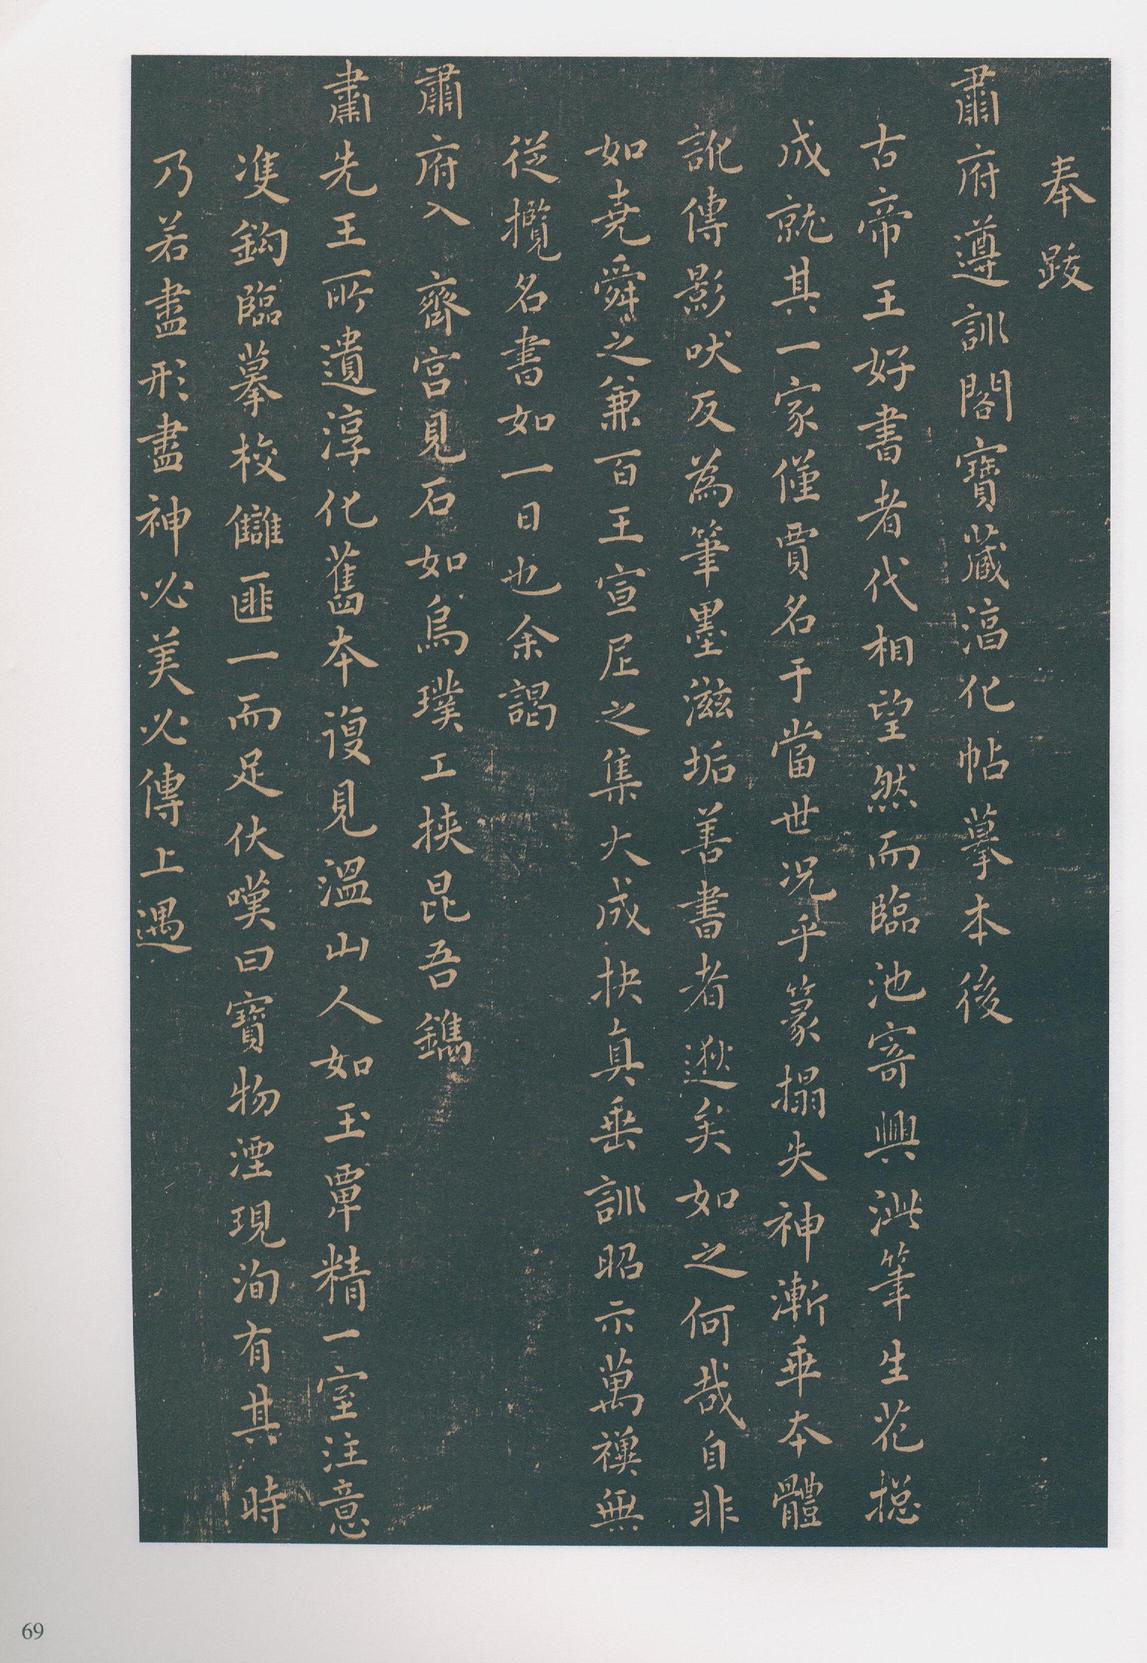 奉跋
肅府遵訓閣寶藏淳化帖摹本後
古帝王好書者代相望然而臨池寄興泚筆生花揔
成就其一家僅賈名于當世況乎篆搨失神漸乖本體
訛傳影吠反為筆墨滋垢善書者逖矣如之何哉自非
如堯舜之兼百王宣尼之集大成抉真垂訓昭示萬禩無
從攬名書如一日也余謁
肅府入 齋宮見石如烏璞工挾昆吾鐫
肅先王所遺淳化舊本復見溫山人如玉覃精一室注意
雙鈎臨摹校讎匪一而足伏嘆曰寶物湮現洵有其時
乃若盡形盡神必美必傳上遇
69